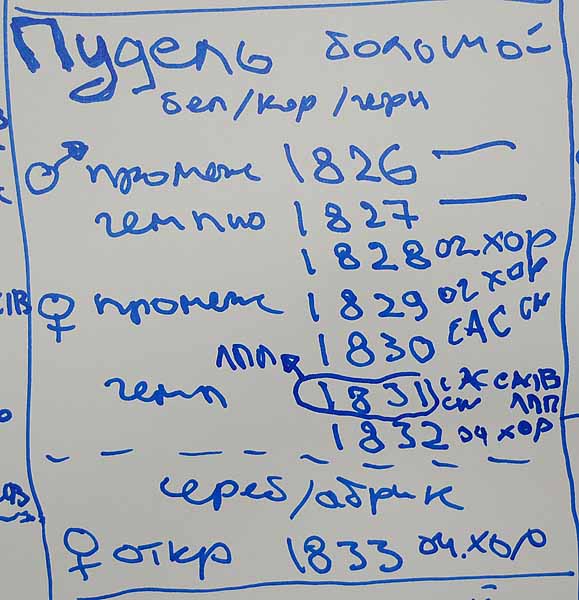 Пудель большой
бел/кор/черн
♂ промеж 1826 —
чемпио 1827 —
1828 оч хор
♀ промеж 1829 оч хор
1830 САС СМ
ЛПП
чемп 1831 САС CACIB
СМ ЛПП
1832 оч хор
сереб/абрик
♀ откр 1833 оч.хор